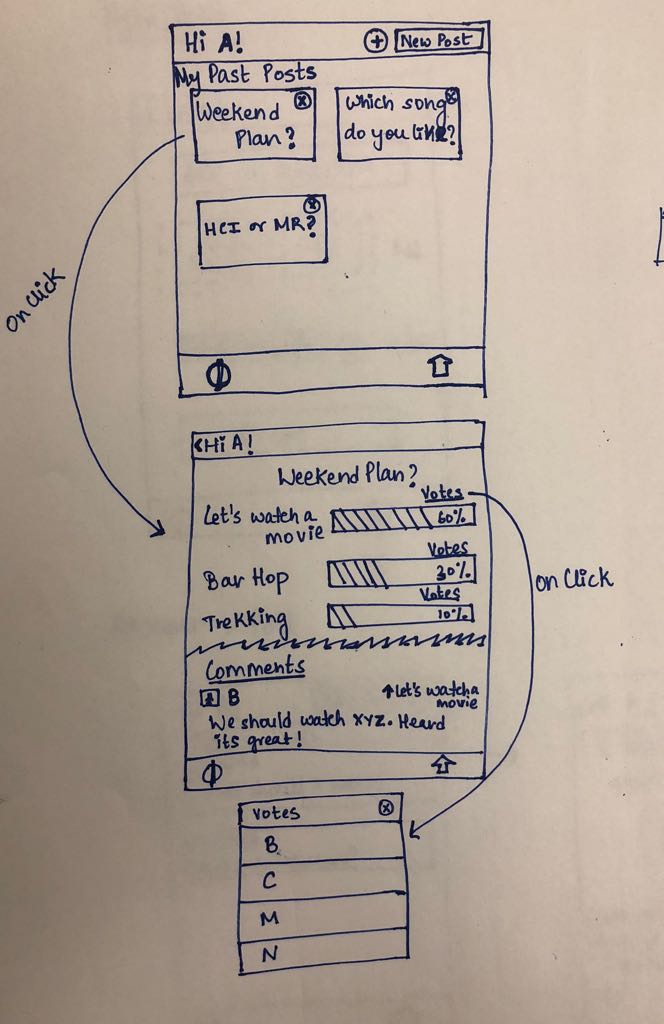 Hi A!
+ New Post
My Past Posts
Weekend
Plan?
Which song
do you like?
HCI or MR?
On Click
<Hi A!
Weekend Plan?
Votes
Let's watch a
movie
60%
Votes
Bar Hop
30%
Votes
Trekking
10%
On Click
Comments
B
↑Let's watch a
movie
We should watch XYZ. Heard
its great!
Votes
B
C
M
N